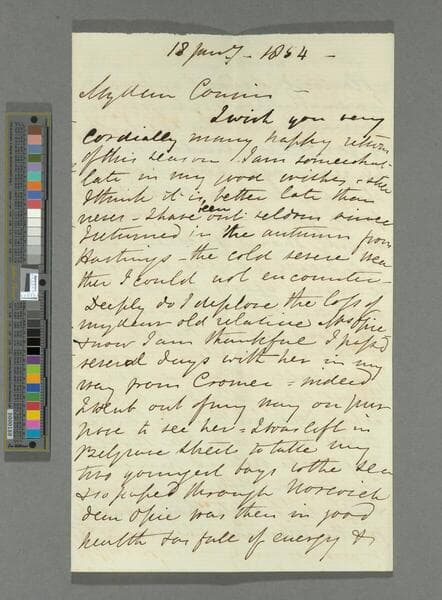 18 Jany - 1854 -
My dear Cousin -
I wish you very
cordially many happy return
of this season I am somewhat
late in my good wishes - still
I think it is better late than
never - I have been out seldom since
I returned in the autumn from
Hastings - the cold severe wea
ther I could not encounter -
Deeply do I deplore the loss of
my dear old relative Mrs Opie
& now I am thankful I passd
several days with her in my
way from Cromer - indeed
I went out of my way on pur
pose to see her - I was left in
Belgrave Street to take my
two youngest boys to the sea
& so passed through Norwich
dear Opie was then in good
health & as full of energy &